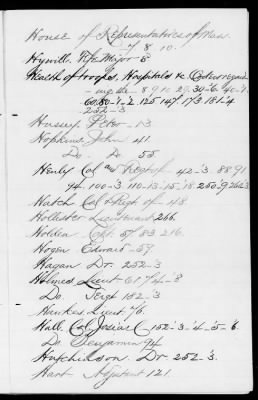 House of Representatives of Mass.
7. 8. 10.
Health of troops, Hospitals &c Orders regard-
-ing the - 8. 9. 10. 29. 30-6. 40-1.
60. 80-1-2 125 147. 173 181-4
252-3
Hussey Peter - 13
Hopkins John 41.
Do. Do 55
Henly Col and Regt of 42-3. 88. 91
94. 100-3 110-13-15-18 250-9 262-3
Hatch Col & Regt of - 48.
Hollister Lieutenant 266.
Holden Capt 57 83 216.
Hogen Edward - 59.
Hagan Dr. 252-3
Holmes Lieut 61 74-8
Do Sergt 152-3
Hawkes Lieut 76.
Hall Col Josias 152-3-4-5-6.
Do Benjamin 94
Hutchinson Dr 252-3.
Hart Adjutant 121.